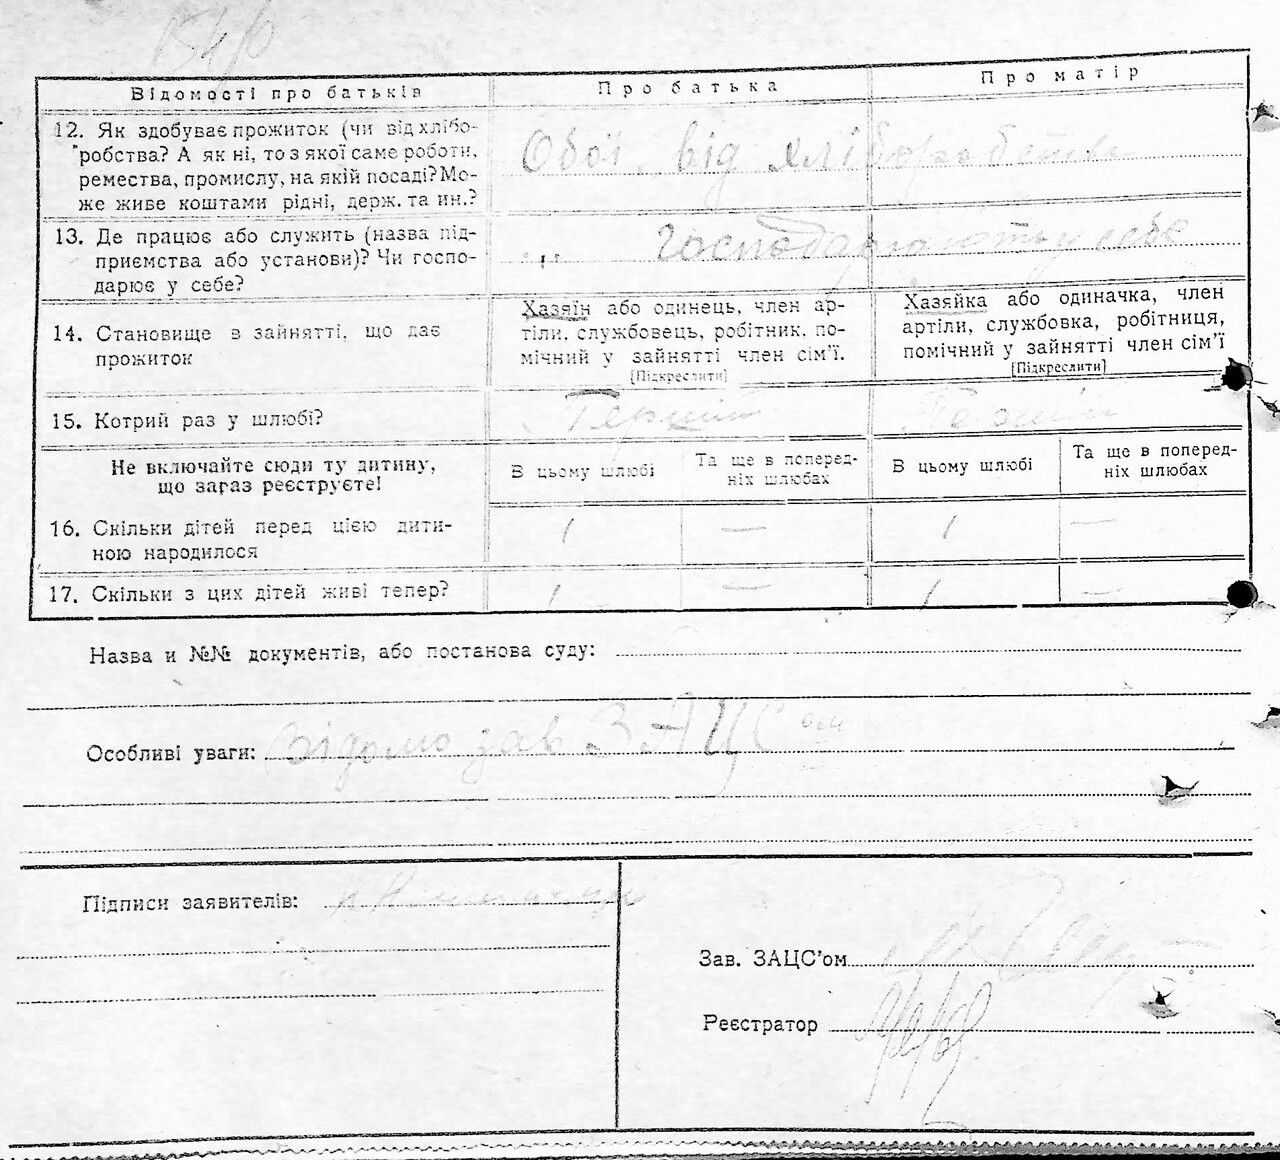 Відомості про батьків
Про батька
Про матір
12. Як здобуває прожиток (чи від хлібо-
робства? А як ні, то з якої саме роботи,
ремества, промислу, на якій посаді? Мо-
же живе коштами рідні, держ. та ин.?
Обоє від хліборобства
13. Де працює або служить (назва під-
приємства або установи)? Чи госпо-
дарює у себе?
„ Господарюють у себе
14. Становище в зайнятті, що дає
прожиток
Хазяїн або одинець, член ар-
тіли, службовець, робітник, по-
мічний у зайнятті член сім'ї.
[Підкреслити]
Хазяйка або одиначка, член
артіли, службовка, робітниця,
помічний у зайнятті член сім'ї
[Підкреслити]
15. Котрий раз у шлюбі?
Перший
Перший
Не включайте сюди ту дитину,
що зараз реєструєте!
В цьому шлюбі
Та ще в поперед-
ніх шлюбах
В цьому шлюбі
Та ще в поперед-
ніх шлюбах
16. Скільки дітей перед цією дити-
ною народилося
1 — 1 —
17. Скільки з цих дітей живі тепер?
1 — 1 —
Назва и №№ документів, або постанова суду:
Особливі уваги: Відомо зав ЗАЦС ом
Підписи заявителів:
Зав. ЗАЦС'ом
Реєстратор